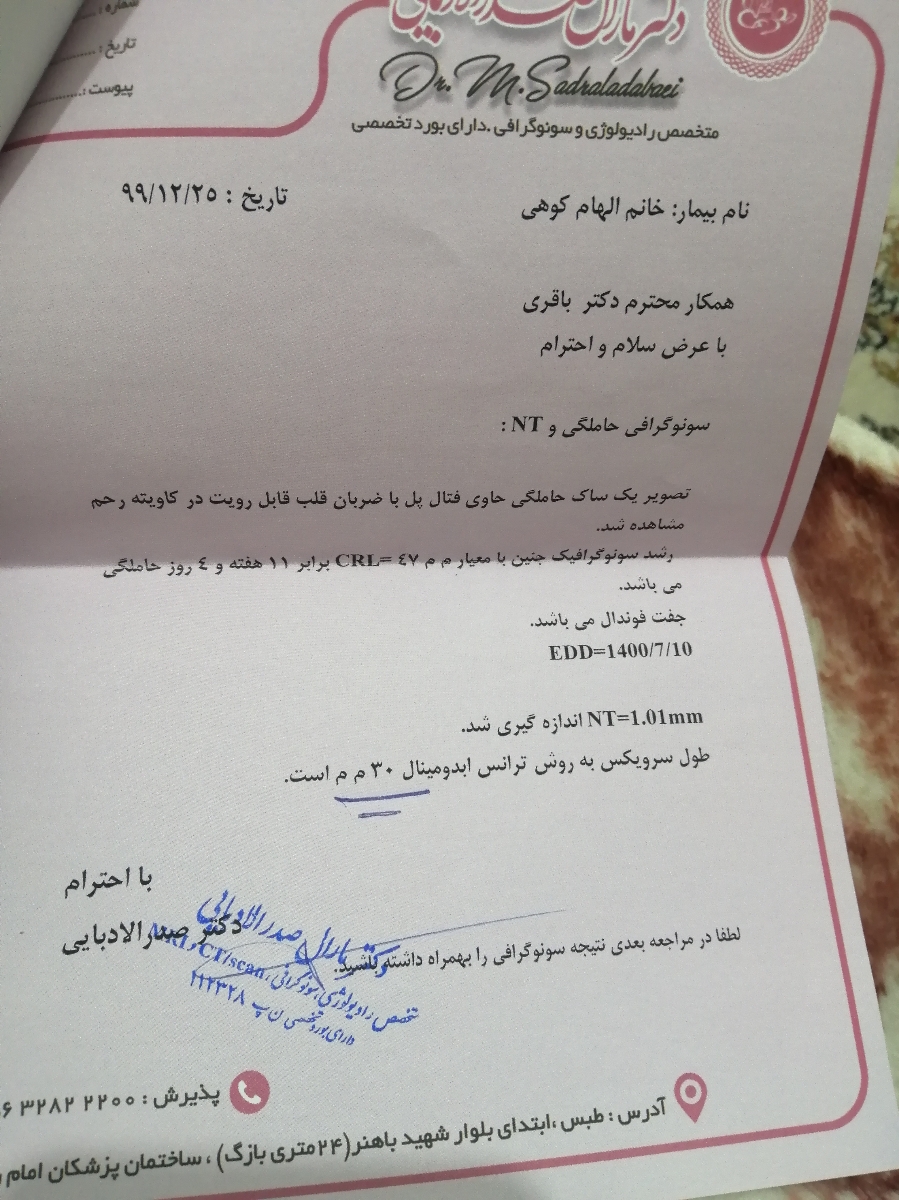 شماره :
تاریخ :
پیوست :
دکتر مارال صدرالادبایی
Dr. M. Sadraladabaei
متخصص رادیولوژی و سونوگرافی .دارای بورد تخصصی
نام بیمار: خانم الهام کوهی
تاریخ : ۹۹/۱۲/۲۵
همکار محترم دکتر باقری
با عرض سلام و احترام
سونوگرافی حاملگی و NT :
تصویر یک ساک حاملگی حاوی فتال پل با ضربان قلب قابل رویت در کاویته رحم
مشاهده شد.
رشد سونوگرافیک جنین با معیار م م ٤٧ =CRL برابر ۱۱ هفته و ٤ روز حاملگی
می باشد.
جفت فوندال می باشد.
EDD=1400/7/10
NT=1.01mm اندازه گیری شد.
طول سرویکس به روش ترانس ابدومینال ۳۰ م م است.
با احترام
دکتر صدرالادبایی
لطفا در مراجعه بعدی نتیجه سونوگرافی را بهمراه داشته باشید.
دکتر مارال صدرالادبایی
تخصص رادیولوژی، سونوگرافی، CTscan و MRI
دارای بورد تخصصی ن پ ۱۱۲۳۲۸
پذیرش : ۳۲۸۲ ۲۲۰۰
آدرس : طبس ،ابتدای بلوار شهید باهنر(۲۴متری بازگ) ، ساختمان پزشکان امام